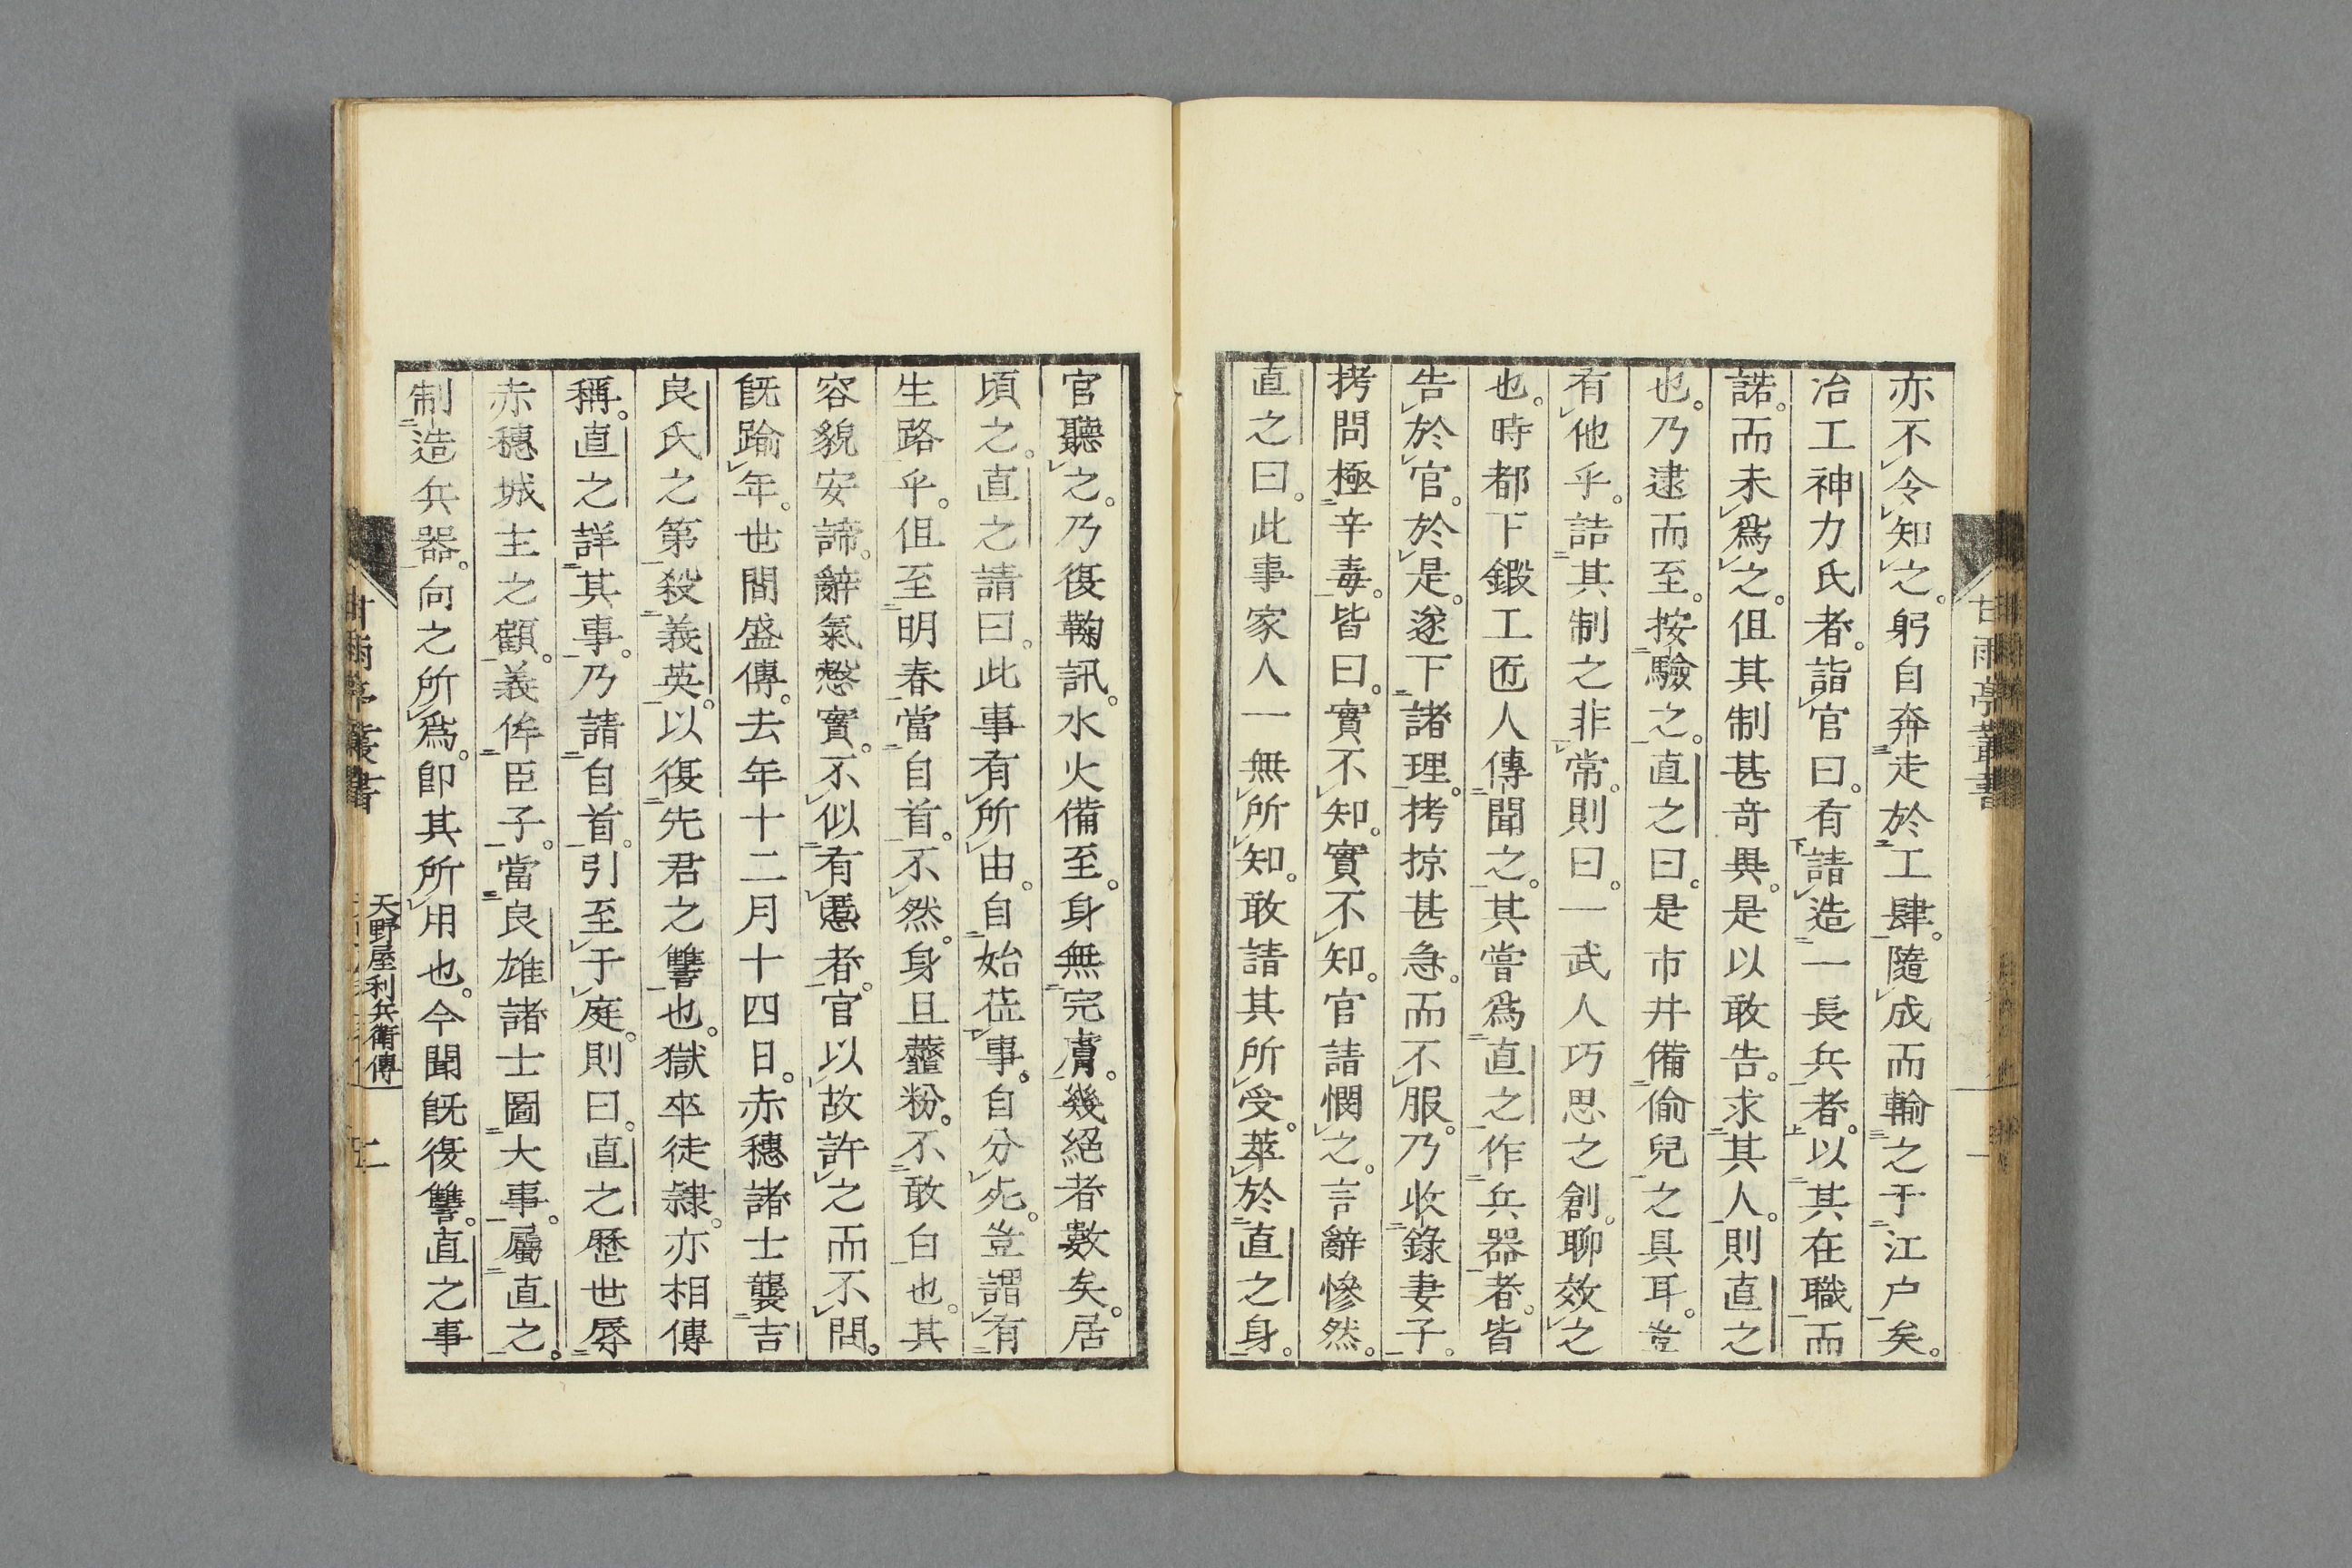 亦不令知之。躬自奔走於工肆。隨成而輸之于江戸矣。
冶工神力氏者。詣官曰。有請造一長兵者。以其在職而
諾。而未爲之。但其制甚奇異。是以敢告。求其人。則直之
也。乃逮而至。按驗之。直之曰。是市井備偷兒之具耳。豈
有他乎。詰其制之非常。則曰。一武人巧思之創。聊效之
也。時都下鍛工匠人傳聞之。其嘗爲直之作兵器者。皆
告於官。於是。遂下諸理。拷掠甚急。而不服。乃收錄妻子。
拷問極辛毒。皆曰。實不知。實不知。官詰憫之。言辭慘然。
直之曰。此事家人一無所知。敢請其所受。萃於直之身。
甘雨亭叢書
官聽之。乃復鞠訊。水火備至。身無完膚。幾絕者數矣。居
頃之。直之請曰。此事有所由。自始莅事。自分死。豈謂有
生路乎。但至明春。當自首。不然。身且虀粉。不敢白也。其
容貌安諦。辭氣愨實。不似有慝者。官以故許之而不問。
旣踰年。世間盛傳。去年十二月十四日。赤穗諸士襲吉
良氏之第。殺義英。以復先君之讐也。獄卒徒隷。亦相傳
稱。直之詳其事。乃請自首。引至于庭。則曰。直之歷世辱
赤穗城主之顧。義侔臣子。當良雄諸士圖大事。屬直之。
制造兵器。向之所爲。卽其所用也。今聞旣復讐。直之事
天野屋利兵衛傳